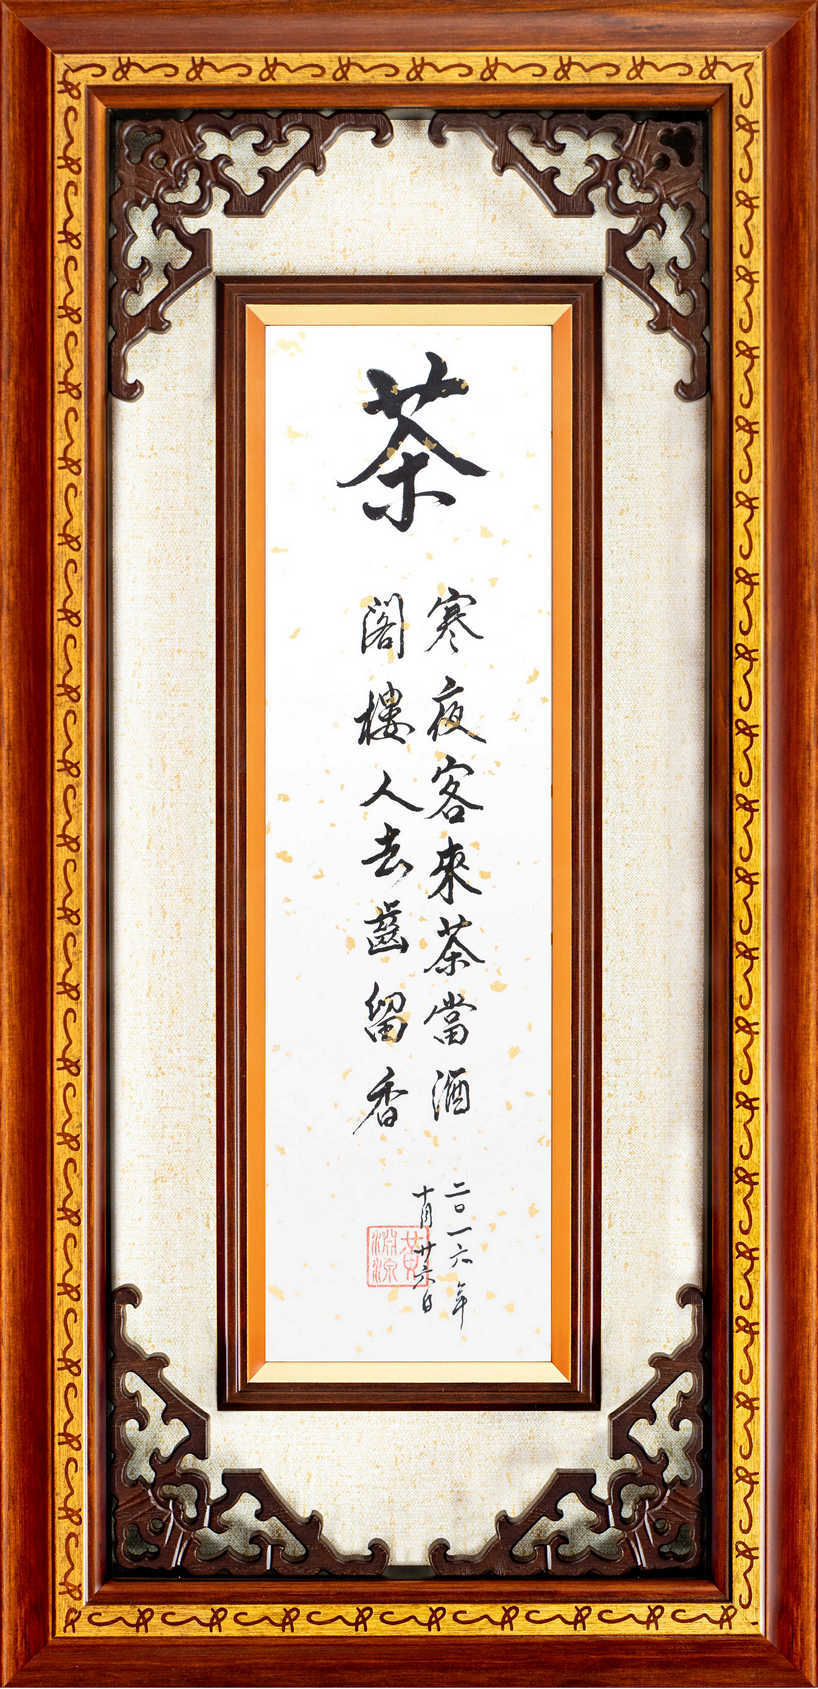 茶
寒夜客來茶當酒
閣樓人去齒留香
二〇一六年
十月廿六日
黃淵源